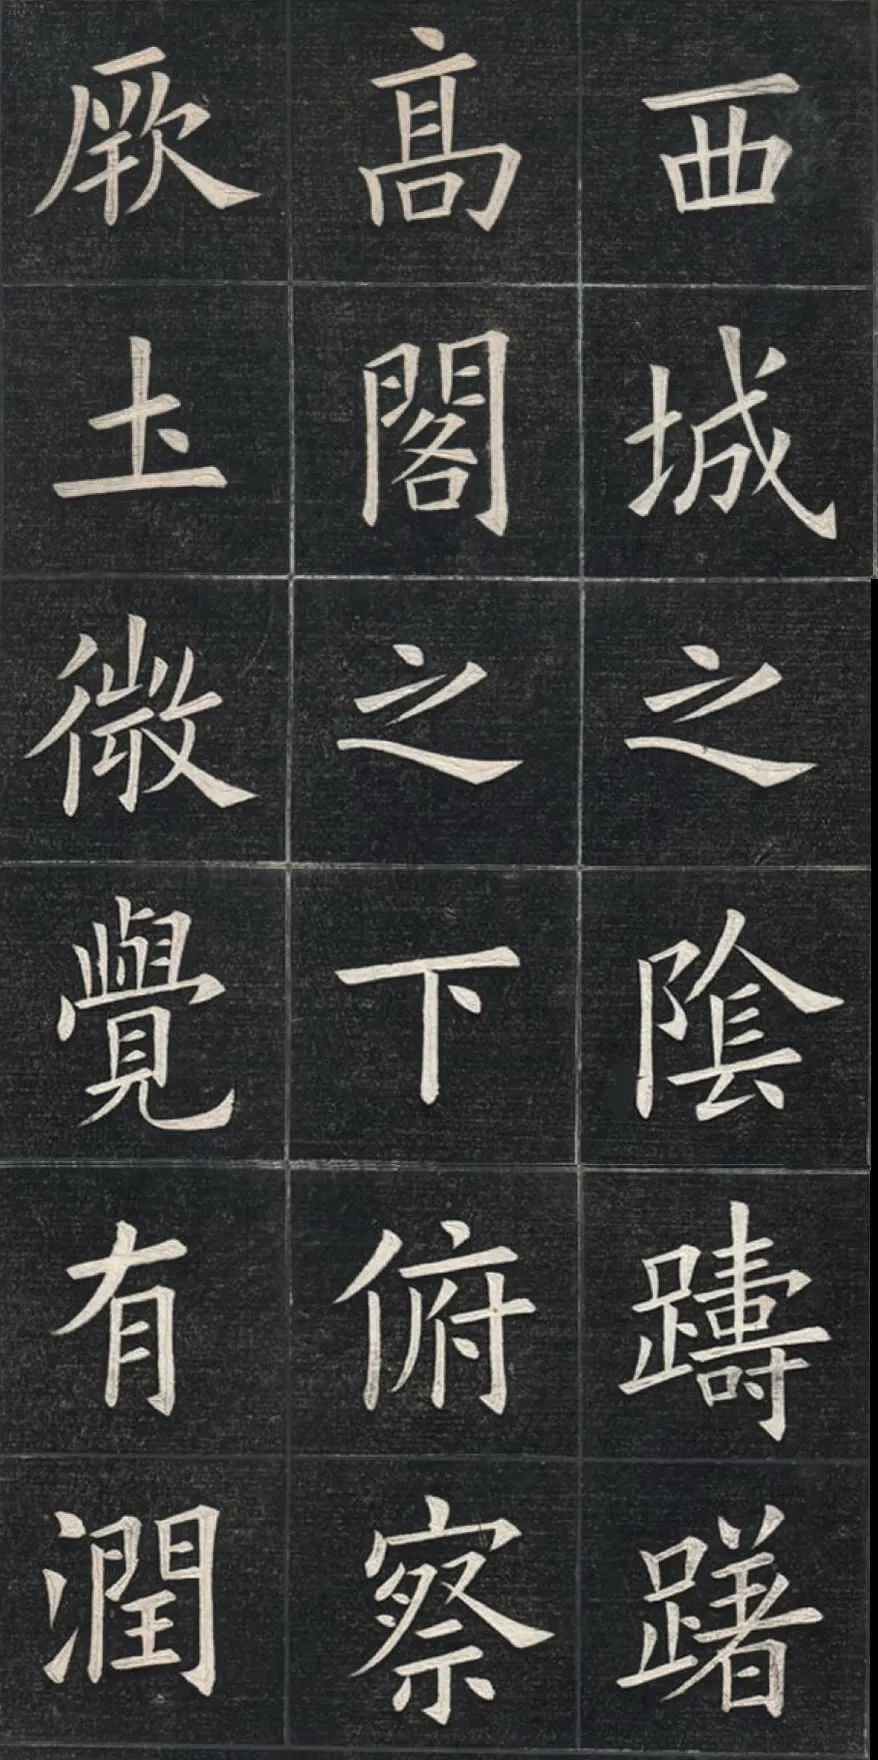 西城之陰躊躇
高閣之下俯察
厥土微覺有潤